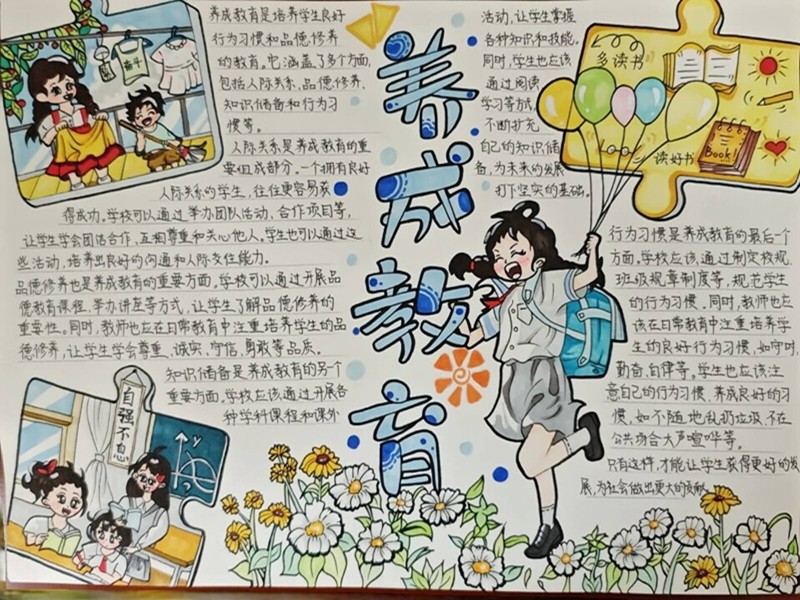 养成教育
养成教育是培养学生良好
行为习惯和品德修养
的教育。它涵盖了多个方面,
包括人际关系、品德修养、
知识储备和行为习
惯等。
人际关系是养成教育的重
要组成部分。一个拥有良好
人际关系的学生,往往更容易获
得成功。学校可以通过举办团队活动、合作项目等,
让学生学会团结合作,互相尊重和关心他人。学生也可以通过这
些活动,培养出良好的沟通和人际交往能力。
品德修养也是养成教育的重要方面,学校可以通过开展品
德教育课程、举办讲座等方式,让学生了解品德修养的
重要性。同时,教师也应在日常教育中注重培养学生的品
德修养,让学生学会尊重、诚实、守信、勇敢等品质。
知识储备是养成教育的另个
重要方面,学校应该通过开展各
种学科课程和课外
活动,让学生掌握
各种知识和技能。
同时,学生也应该
通过阅读
学习等方式,
不断扩充
自己的知识储
备,为未来的发展
打下坚实的基础。
行为习惯是养成教育的最后一个
方面,学校应该通过制定校规、
班级规章制度等,规范学生
的行为习惯,同时,教师也应
该在日常教育中注重培养学
生的良好行为习惯,如守时,
勤奋、自律等。学生也应该注
意自己的行为习惯、养成良好的习
惯,如不随地乱扔垃圾、不在
公共场合大声喧哗等。
只有这样,才能让学生获得更好的发
展,为社会做出更大的贡献
奋斗
多读书
读好书
Book!
自强不息
y
x